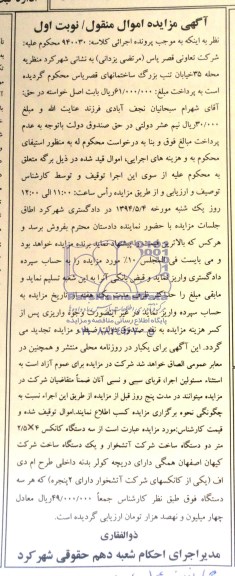 آگهی مزایده اموال منقول/ نوبت اول
نظر به اینکه به موجب پرونده اجرائی کلاسه: ۹۴۰۰۳۰ محکوم علیه:
شرکت تعاونی قصر یاس (مرتضی یزدانی) به نشانی شهرکرد منظریه
محله ۳۵خیابان تنب بزرگ ساختمانهای قصریاس محکوم گردیده
است به پرداخت مبلغ: ۶۱/۰۰۰/۰۰۰ریال بابت اصل خواسته در حق:
آقای شهرام سبحانیان نجف آبادی فرزند عنایت الله و مبلغ
۳۰/۰۰۰ریال نیم عشر دولتی در حق صندوق دولت باتوجه به عدم
پرداخت مبالغ فوق و بنا به درخواست محکوم له به منظور استیفای
محکوم به و هزینه های اجرایی، اموال قید شده در ذیل برگه متعلق
به محکوم علیه از سوی این اجرا توقیف و توسط کارشناس
توصیف و ارزیابی و از طریق مزایده رأس ساعت: ۱۱:۰۰ الی ۱۲:۰۰
روز یک شنبه مورخه ۱۳۹۴/۵/۴ در دادگستری شهرکرد اطاق
جلسات مزایده با حضور نماینده دادستان محترم بفروش برسد و
هرکس که بالاترین قیمت را پیشنهاد نماید برنده مزایده خواهد بود
و می بایست فی المجلس ۱۰٪ مورد مزایده را به حساب سپرده
دادگستری واریز نماید و فیش بانکی آنرا به این شعبه تسلیم نماید و
مابقی مبلغ را حداکثر ظرف مدت از تاریخ مزایده به
حساب سپرده واریز نماید در غیر اینصورت وجوه واریزی پس از
کسر هزینه مزایده به نفع صندوق دولت ضبط و مزایده تجدید می
گردد. این آگهی برای یکبار در روزنامه محلی منتشر و همچنین در
معابر عمومی الصاق خواهد شد، شرکت در مزایده برای عموم آزاد است به
استثناء مسئولین اجرا، قربای سببی و نسبی آنان ضمناً متقاضیان شرکت در
مزایده میتوانند در مدت پنج روز قبل از مزایده از طریق این اجراء نسبت به
چگونگی نحوه برگزاری مزایده کسب اطلاع نمایند.اموال توقیف شده و
قیمت کارشناس:مورد مزایده عبارت است از سه دستگاه کانکس ۴×۲/۵
متر دو دستگاه ساخت شرکت آتشخوار و یک دستگاه ساخت شرکت
کیهان اصفهان همگی دارای دریچه کولر بدنه داخلی طرح ام دی
اف (یکی از کانکسهای شرکت آتشخوار دارای ۲پنجره) که هر سه
دستگاه فوق طبق نظر کارشناس جمعاً ۴۹/۰۰۰/۰۰۰ریال معادل
چهار میلیون و نهصد هزار تومان ارزیابی گردیده است.
ذوالفقاری
مدیراجرای احکام شعبه دهم حقوقی شهرکرد